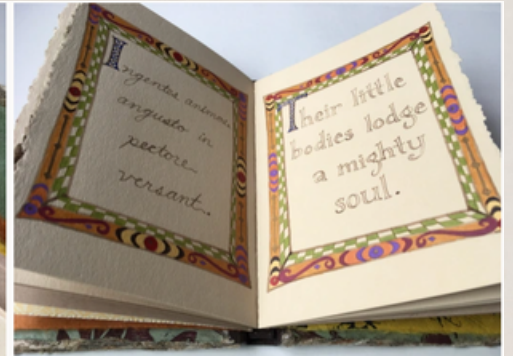 Ingentes animos
angusto in
pectore
versant.
Their little
bodies lodge
a mighty
soul.